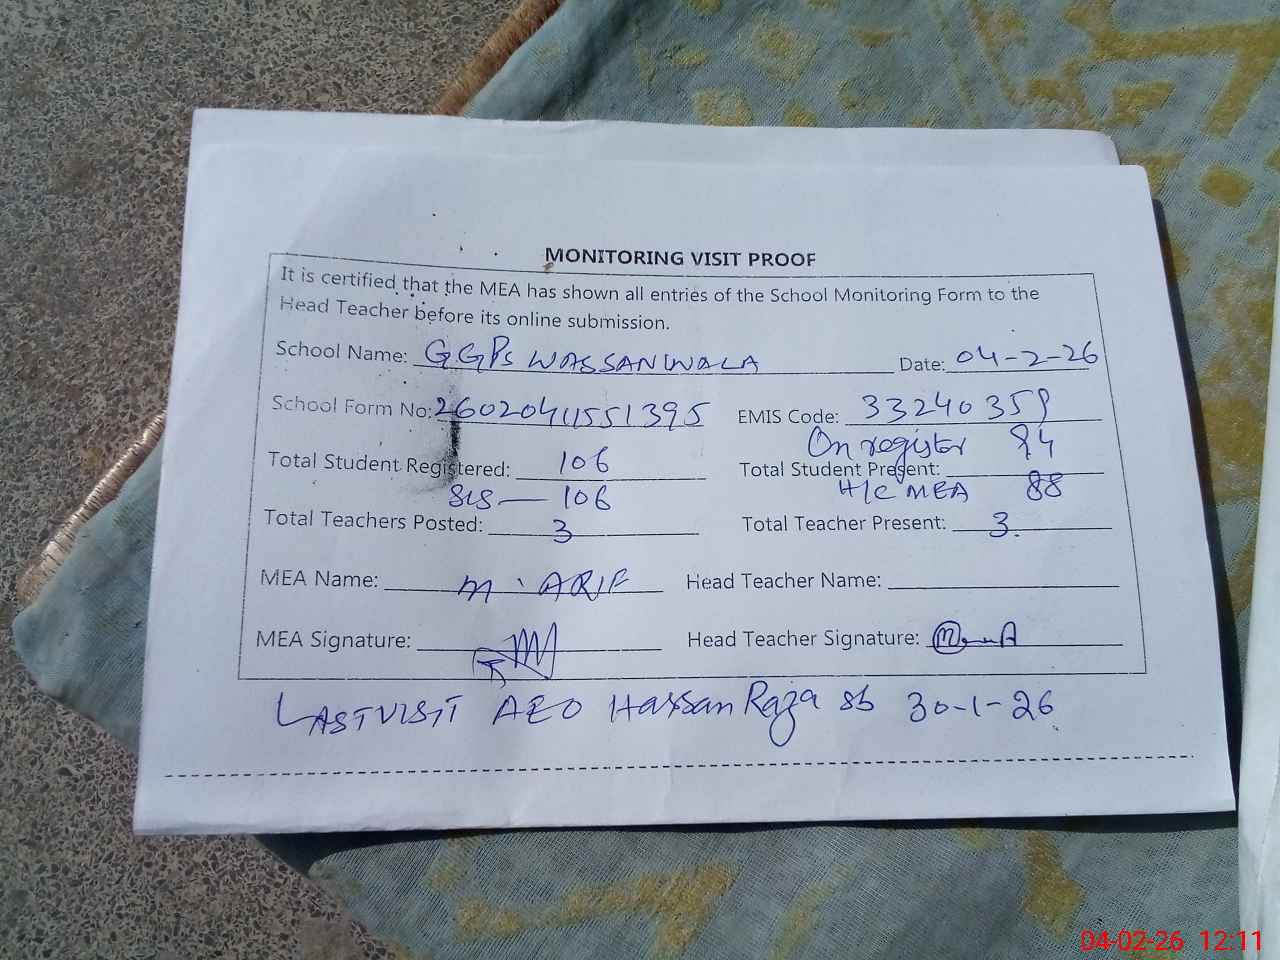 MONITORING VISIT PROOF
It is certified that the MEA has shown all entries of the School Monitoring Form to the
Head Teacher before its online submission.
School Name: GGPS WASSANWALA Date: 04-2-26
School Form No: 26020411551395 EMIS Code: 33240359
On register 94
Total Student Registered: 106 Total Student Present:
SIS — 106 H/C MEA 88
Total Teachers Posted: 3 Total Teacher Present: 3.
MEA Name: M. ARIF Head Teacher Name:
MEA Signature: Head Teacher Signature:
LAST VISIT AEO Hassan Raza sb 30-1-26
04-02-26 12:11